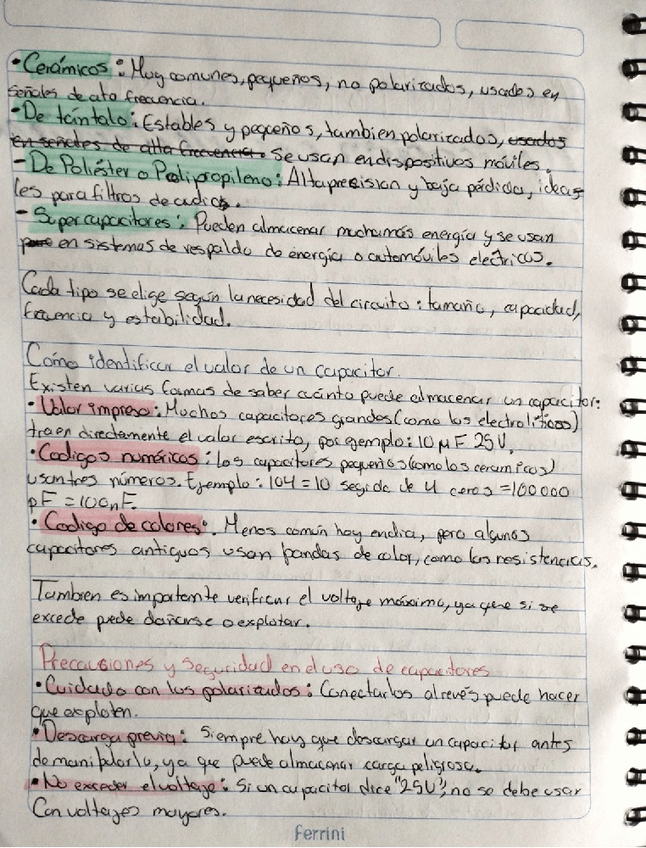 • Cerámicos: Muy comunes, pequeños, no polarizados, usados en
señales de ata frecuencia.
- De tántalo: Estables y pequeños, tambien polarizados, usados
en señales de alta frecuencia. Se usan en dispositivos móviles.
- De Poliéster o Polipropileno: Alta presision y baja pérdida, idea
les para filtros de audio.
- Supercapacitores: Pueden almacenar mucha más energía y se usan
en sistemas de respaldo de energía o automóviles electricos.
Cada tipo se elige según la necesidad del circuito: tamaño, capacidad,
frecuencia y estabilidad.
Como identificar el valor de un capacitor.
Existen varias formas de saber cuánto puede almacenar un capacitor:
• Valor impreso: Muchos capacitores grandes (como los electrolíticos)
traen directamente el valor escrito, por ejemplo: 10 µF 25V.
• Codigos numéricos: Los capacitores pequeños (como los ceramicos)
usan tres números. Ejemplo: 104 = 10 seguido de 4 ceros = 100000
pF = 100nF.
• Codigo de colores: Menos común hoy en dia, pero algunos
capacitores antiguos usan bandas de color, como las resistencias.
Tambien es importante verificar el voltaje máximo, ya que si se
excede puede dañarse o explotar.
Precauciones y Seguridad en el uso de capacitores
• Cuidado con los polarizados: Conectarlos al revés puede hacer
que exploten.
• Descarga previa: Siempre hay que descargar un capacitor antes
de manipularlo, ya que puede almacenar carga peligrosa.
• No exceder el voltaje: Si un capacitor dice "25V", no se debe usar
Con voltajes mayores.
Ferrini